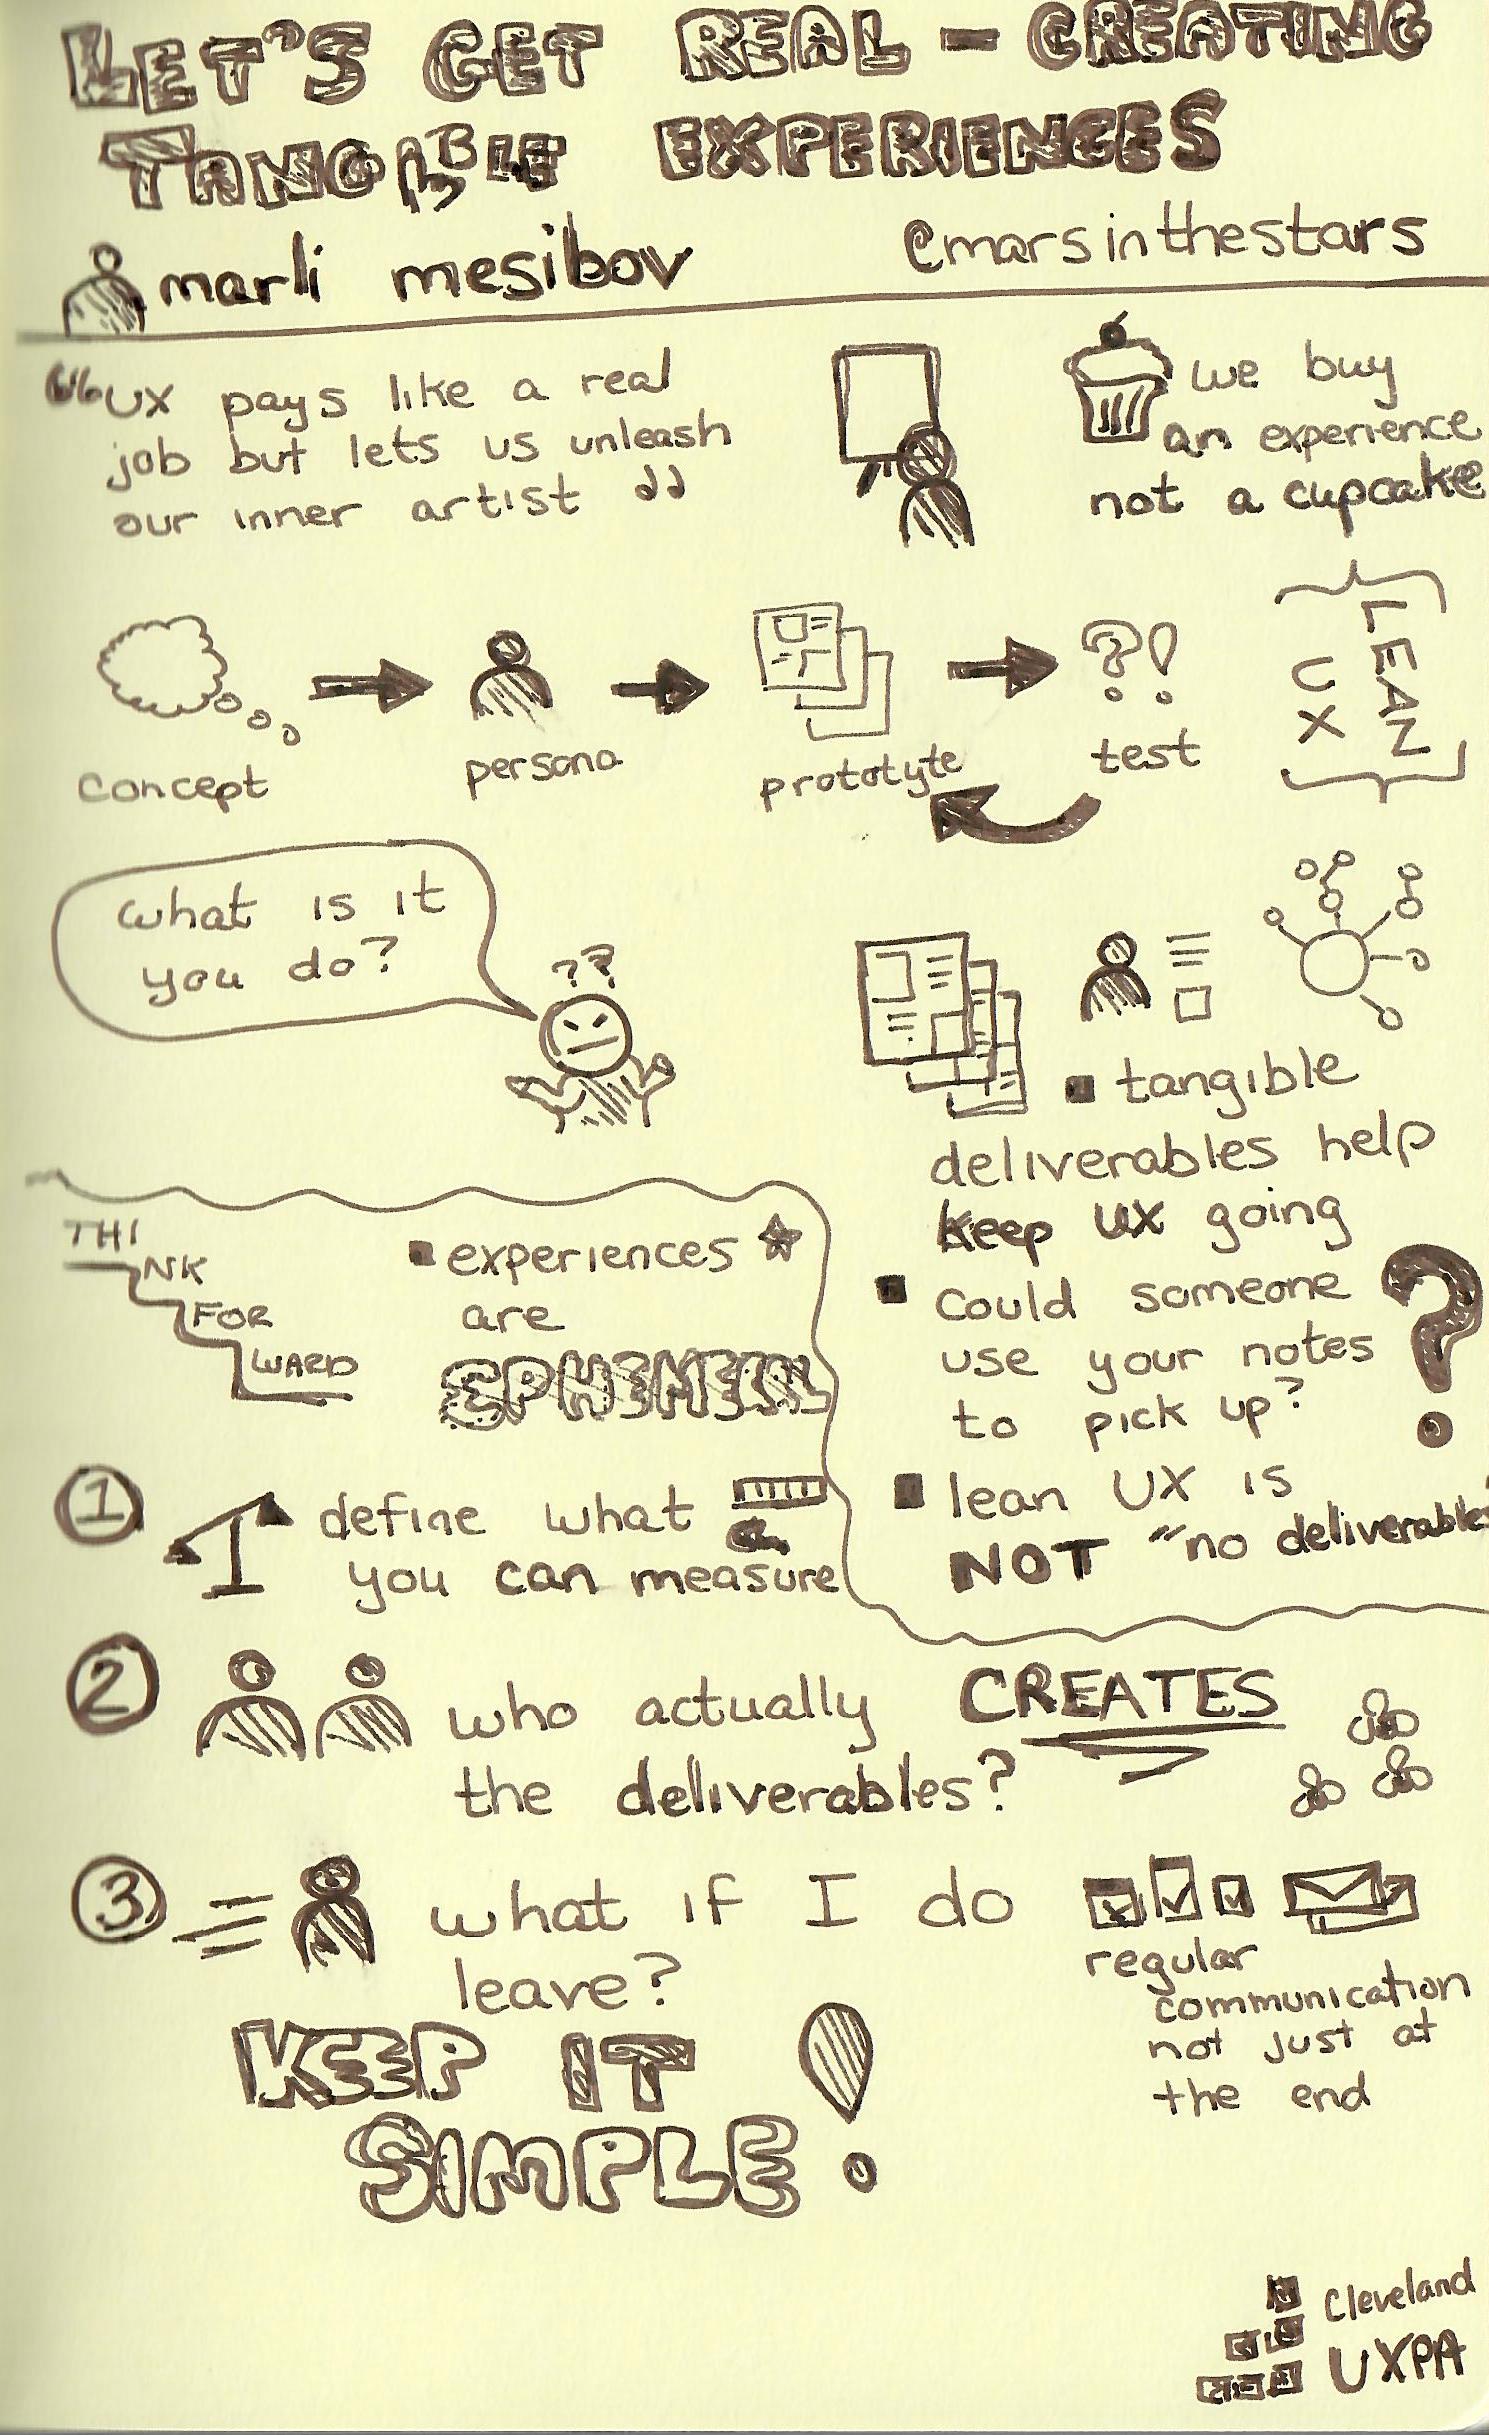 LET'S GET REAL - CREATING
TANGIBLE EXPERIENCES
marli mesibov @marsinthestars
"UX pays like a real
job but lets us unleash
our inner artist"
we buy
an experience
not a cupcake
concept
persona
prototyte
test
LEAN
UX
what is it
you do?
??
tangible
deliverables help
keep UX going
Could someone
use your notes
to pick up?
?
lean UX is
NOT "no deliverables"
THI
NK
FOR
WARD
experiences
are
1 define what
you can measure
2 who actually CREATES
the deliverables?
3 what if I do
leave?
regular
communication
not just at
the end
KEEP IT
SIMPLE!
Cleveland
UXPA